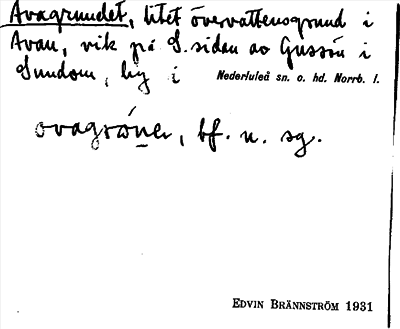 Avagrundet, litet övervattensgrund i
Avan, vik på S. sidan av Gussön i
Sundom, by i Nederluleå sn. o. hd. Norrb. l.
bf. n. sg.
EDVIN BRÄNNSTRÖM 1931